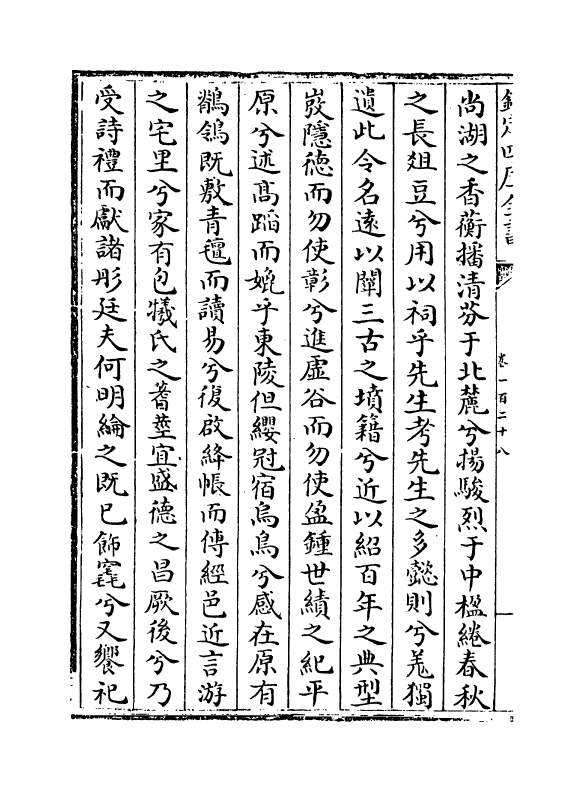 欽定四庫全書
卷一百二十八
尚湖之香蘅播清芬于北麓兮揚駿烈于中楹綣春秋
之長俎豆兮用以祠乎先生考先生之多懿則兮羗獨
遺此令名遠以闡三古之墳籍兮近以紹百年之典型
發隱徳而勿使彰兮進虛谷而勿使盈鍾世績之紀平
原兮述髙蹈而娩乎東陵但纓冠宿烏烏兮感在原有
鶺鴒既敷青氊而讀易兮復啟絳帳而傳經邑近言游
之宅里兮家有包犧氏之蓍莖宜盛徳之昌厥後兮乃
受詩禮而獻諸彤廷夫何明綸之既已飾窀兮又饗祀